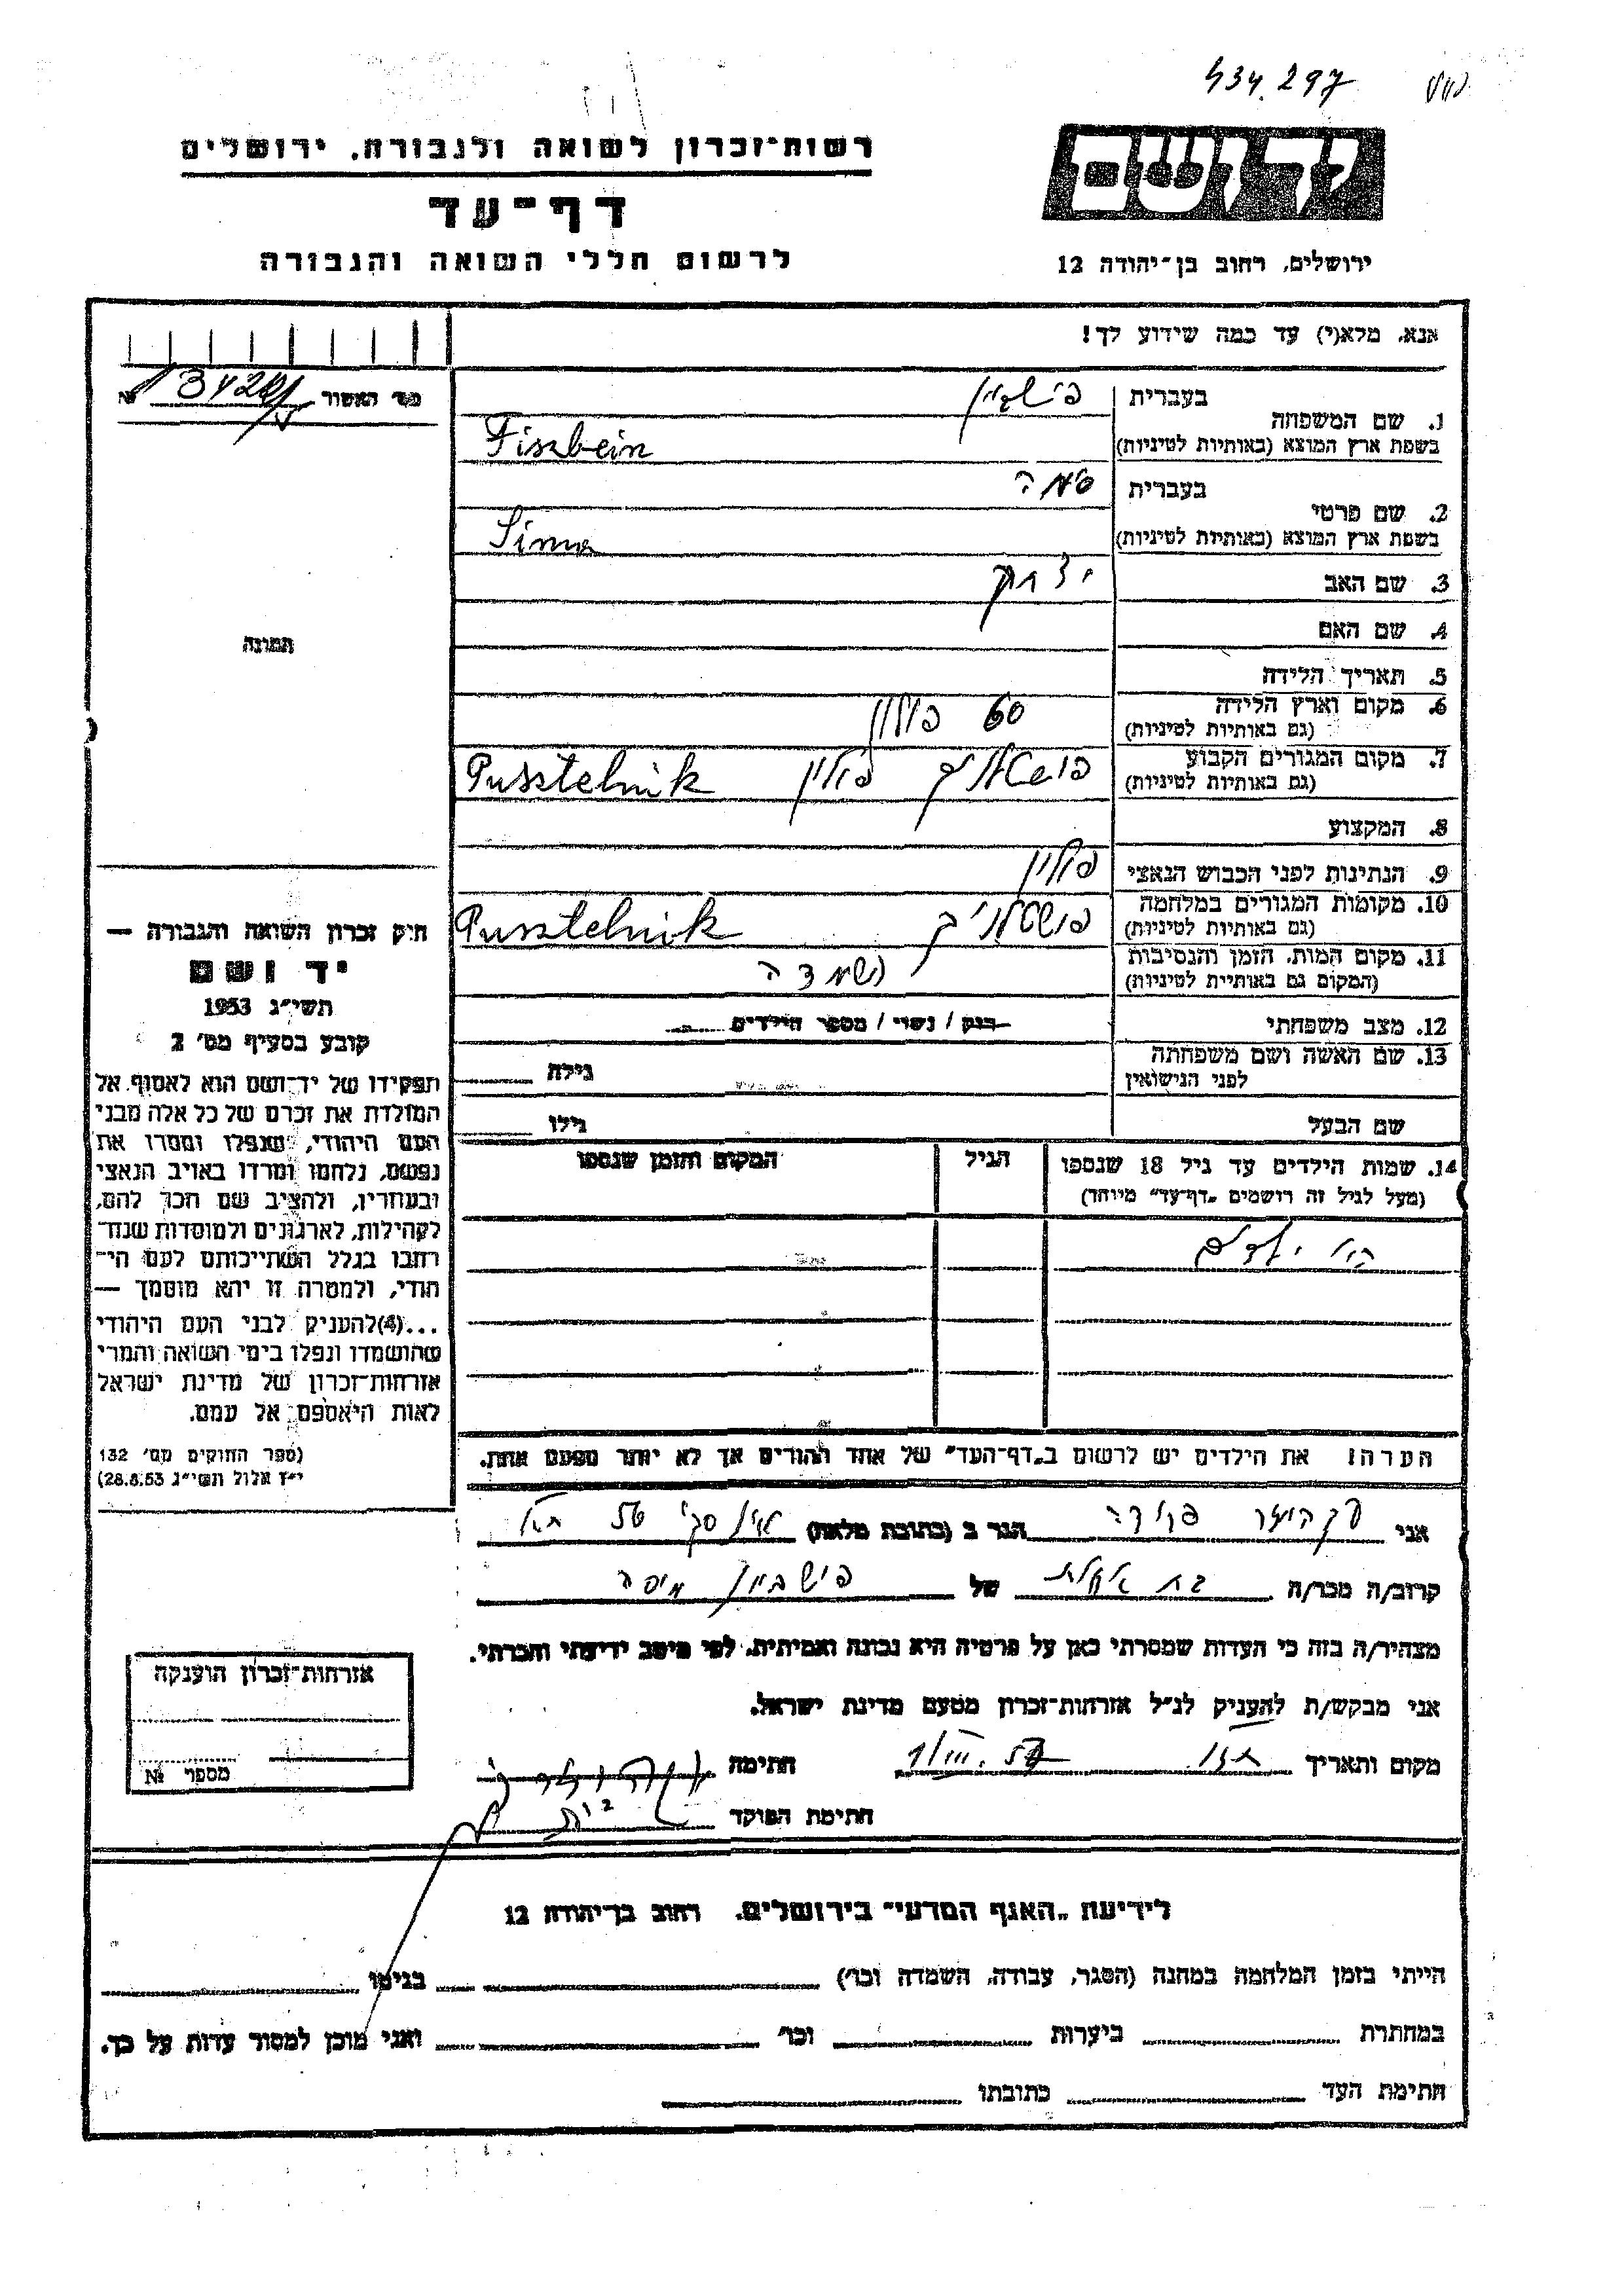 434.297
רשות-זכרון לשואה ולגבורה, ירושלים
דף-עד
לרשום חללי השואה והגבורה
ירושלים, רחוב בן-יהודה 12
אנא, מלא(י) עד כמה שידוע לך!
מס' האשור №
1. שם המשפחה בעברית
בשפת ארץ המוצא (באותיות לטיניות) Fiszbein
2. שם פרטי בעברית סימה
בשפת ארץ המוצא (באותיות לטיניות) Sima
3. שם האב יצחק
4. שם האם
5. תאריך הלידה
6. מקום וארץ הלידה 60 פולין
(גם באותיות לטיניות)
7. מקום המגורים הקבוע פולין Pusztelnik
(גם באותיות לטיניות)
8. המקצוע
9. הנתינות לפני הכבוש הנאצי פולין
10. מקומות המגורים במלחמה פושטלניק Pusztelnik
(גם באותיות לטיניות)
11. מקום המות, הזמן והנסיבות
(המקום גם באותיית לטיניות)
12. מצב משפחתי רווק / נשוי / מספר הילדים
13. שם האשה ושם משפחתה גילה
לפני הנישואין
שם הבעל גילו
14. שמות הילדים עד גיל 18 שנספו הגיל המקום והזמן שנספו
(מעל לגיל זה רושמים "דף-עד" מיוחד)
היו ילדים
הערה: את הילדים יש לרשום ב"דף-העד" של אחד ההורים אך לא יותר מפעם אחת.
תמונה
חוק זכרון השואה והגבורה —
יד ושם
תשי"ג 1953
קובע בסעיף מס' 2
תפקידו של יד-ושם הוא לאסוף אל
המולדת את זכרם של כל אלה מבני
העם היהודי, שנפלו ומסרו את
נפשם, נלחמו ומרדו באויב הנאצי
ובעוזריו, ולהציב שם וזכר להם,
לקהילות, לארגונים ולמוסדות שנח-
רבו בגלל השתייכותם לעם הי-
הודי, ולמטרה זו יהא מוסמך —
...(4)להעניק לבני העם היהודי
שהושמדו ונפלו בימי השואה והמרי
אזרחות-זכרון של מדינת ישראל
לאות היאספם אל עמם.
(ספר החוקים מס' 132
י"ז אלול תשי"ג 28.8.53)
אני הגר ב (כתובת מלאה)
קרוב/ה מכר/ה של פישביין
מצהיר/ה בזה כי העדות שמסרתי כאן על פרטיה היא נכונה ואמיתית, לפי מיטב ידיעתי והכרתי.
אני מבקש/ת להעניק לנ"ל אזרחות-זכרון מטעם מדינת ישראל.
מקום ותאריך חתימה
חתימת הפוקד
אזרחות-זכרון הוענקה
מספר №
לידיעת "האגף המדעי" בירושלים, רחוב בן-יהודה 12
הייתי בזמן המלחמה במחנה (הסגר, עבודה, השמדה וכו') בגיטו
במחתרת ביערות וכו' ואני מוכן למסור עדות על כך.
חתימת העד כתובתו